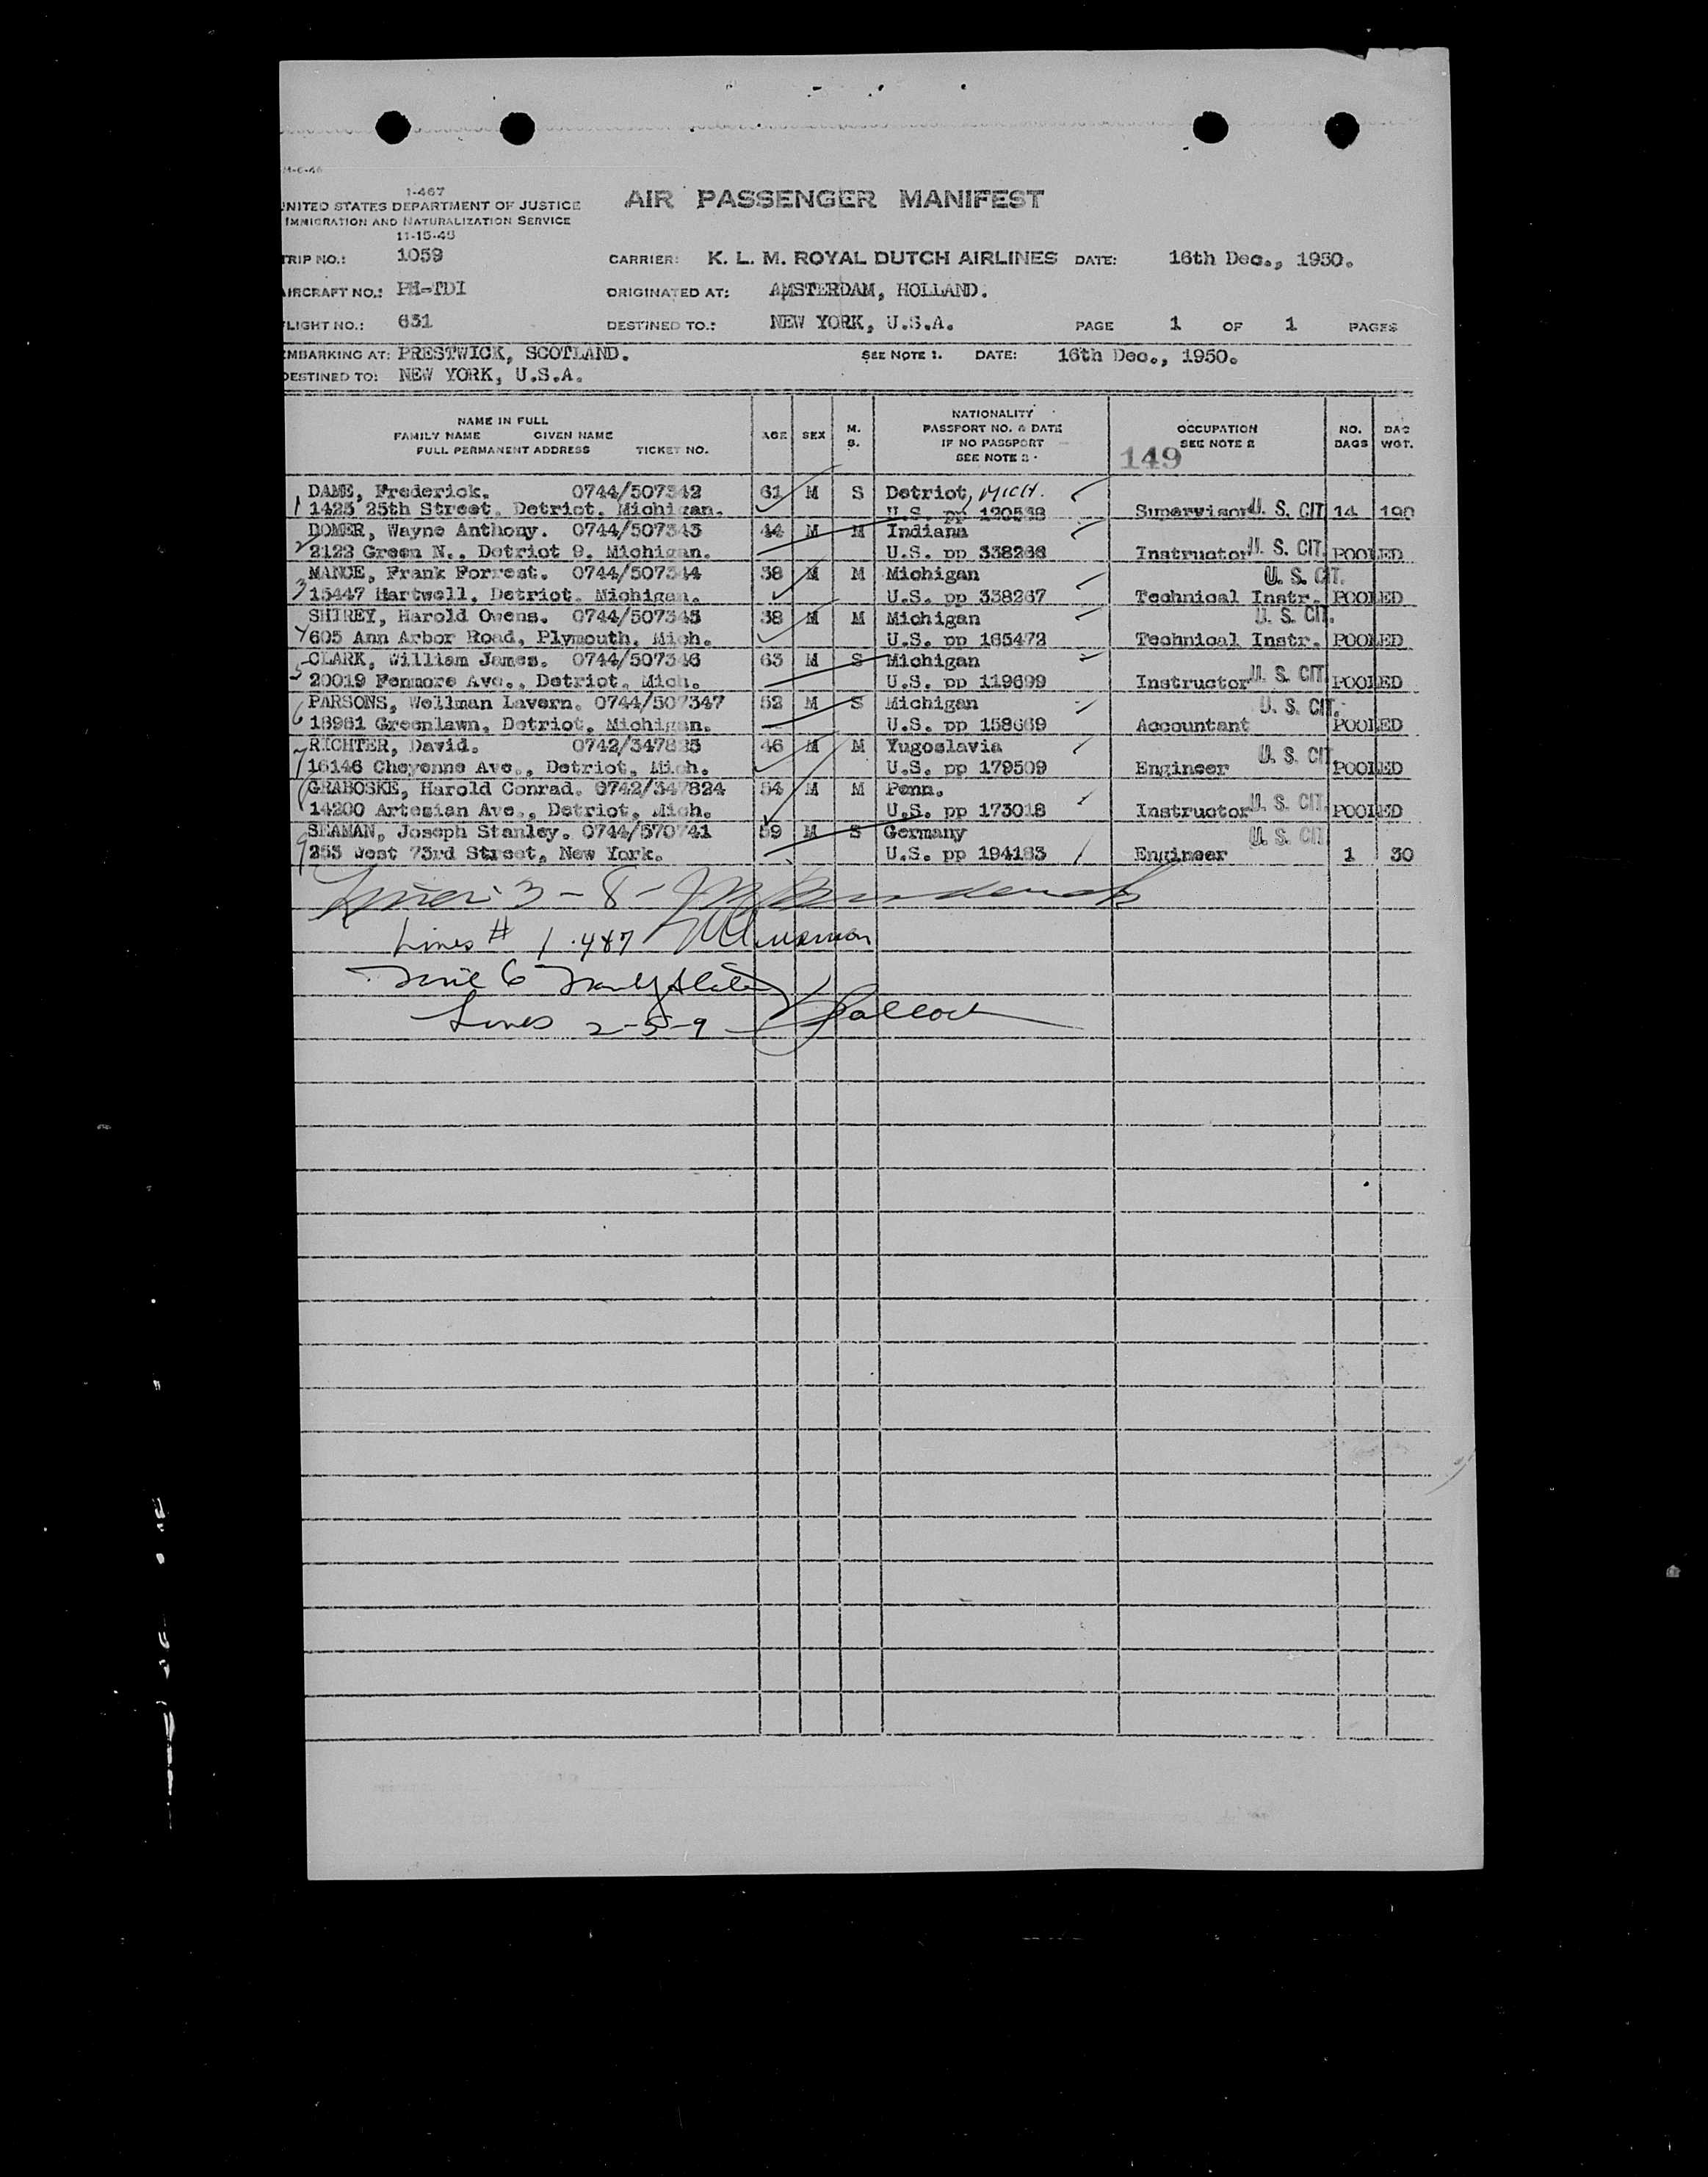 1-467
UNITED STATES DEPARTMENT OF JUSTICE
IMMIGRATION AND NATURALIZATION SERVICE
11-15-45
AIR PASSENGER MANIFEST
TRIP NO.: 1059 CARRIER: K. L. M. ROYAL DUTCH AIRLINES DATE: 16th Dec., 1950.
AIRCRAFT NO.: PH-TDI ORIGINATED AT: AMSTERDAM, HOLLAND.
FLIGHT NO.: 631 DESTINED TO.: NEW YORK, U.S.A. PAGE 1 OF 1 PAGES
EMBARKING AT: PRESTWICK, SCOTLAND. SEE NOTE 1. DATE: 16th Dec., 1950.
DESTINED TO: NEW YORK, U.S.A.
NAME IN FULL
FAMILY NAME GIVEN NAME
FULL PERMANENT ADDRESS TICKET NO.
AGE SEX M. S.
NATIONALITY
PASSPORT NO. & DATE
IF NO PASSPORT
SEE NOTE 3
OCCUPATION
SEE NOTE 2
149
NO. BAGS
BAG WGT.
DAME, Frederick. 0744/507342 61 M S Detriot, MICH.
1 1425 25th Street. Detriot. Michigan. U.S. pp Supervisor U. S. CIT. 14 190
DOMER, Wayne Anthony. 0744/507343 44 M M Indiana
2 2122 Green N., Detriot 9. Michigan. U.S. pp 338268 Instructor U. S. CIT. POOLED
MANCE, Frank Forrest. 0744/507344 38 M M Michigan U. S. CIT.
3 15447 Hartwell. Detriot. Michigan. U.S. pp 338267 Technical Instr. POOLED
SHIREY, Harold Owens. 0744/507345 38 M M Michigan U. S. CIT.
4 605 Ann Arbor Road, Plymouth, Mich. U.S. pp 165472 Technical Instr. POOLED
CLARK, William James. 0744/507346 63 M S Michigan
5 20019 Fenmore Ave., Detriot. Mich. U.S. pp 119699 Instructor U. S. CIT. POOLED
PARSONS, Wellman Lavern. 0744/507347 52 M S Michigan U. S. CIT.
6 18981 Greenlawn, Detriot, Michigan. U.S. pp 158669 Accountant POOLED
RICHTER, David. 0742/347825 46 M M Yugoslavia U. S. CIT.
7 16146 Cheyenne Ave., Detriot, Mich. U.S. pp 179509 Engineer POOLED
GRABOSKE, Harold Conrad. 0742/347824 54 M M Penn.
14200 Artesian Ave., Detriot, Mich. U.S. pp 173018 Instructor U. S. CIT. POOLED
SEAMAN, Joseph Stanley. 0744/570741 59 M S Germany U. S. CIT.
9 253 West 73rd Street, New York. U.S. pp 194183 Engineer 1 30
3 - 8 -
Lines # 1.4&7
6
Lines 2-5-9